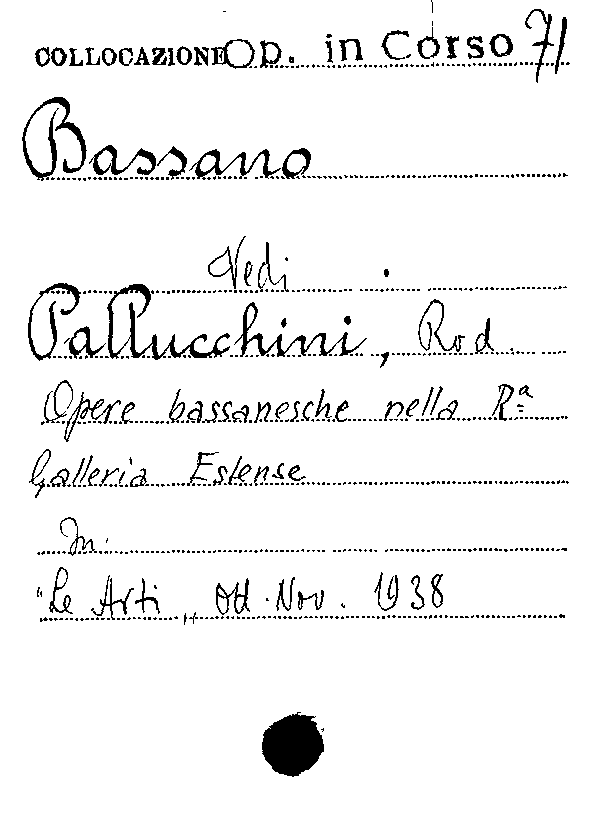 COLLOCAZIONE Op. in Corso 71
Bassano
Vedi
Pallucchini, Rod.
Opere bassanesche nella Rª
Galleria Estense
In:
"Le Arti„ Ott. Nov. 1938